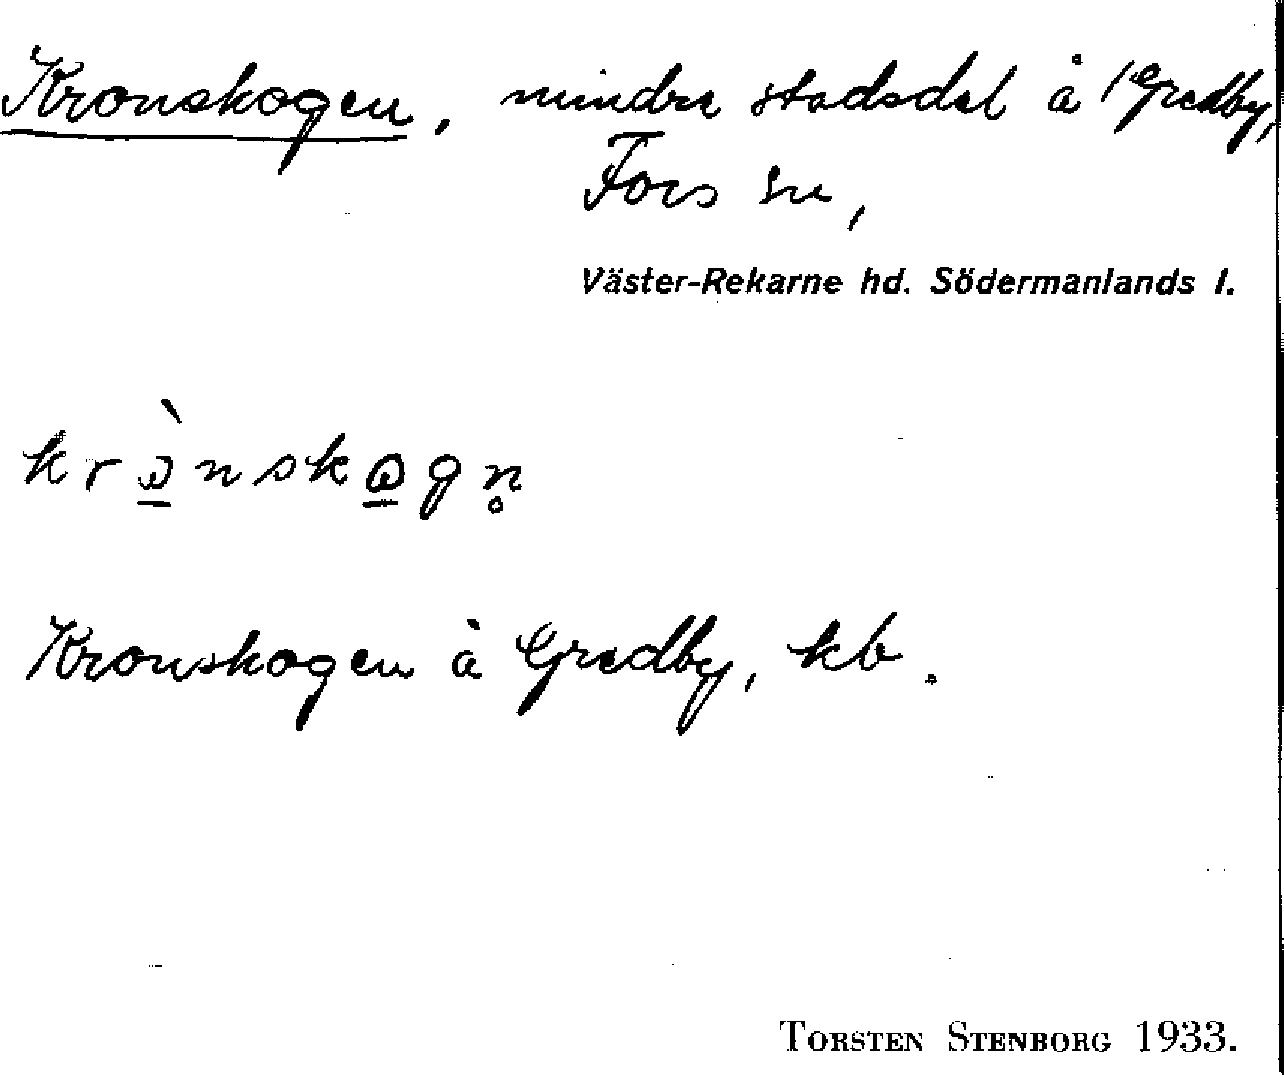 Kronskogen, mindre stadsdel å Gredby,
Fors sn,
Väster-Rekarne hd. Södermanlands l.
krὼnskωgn̥
Kronskogen å Gredby, kb.
TORSTEN STENBORG 1933.